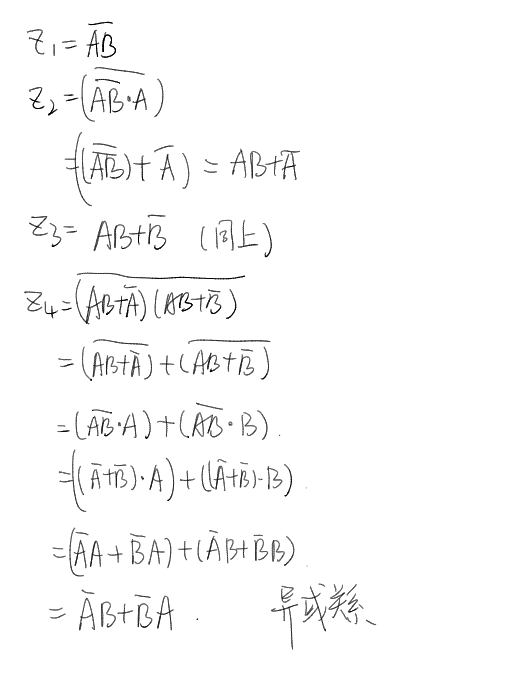 Z₁ = A̅B̅
Z₂ = \overline{(\overline{AB}·A)}
= (\overline{(\overline{AB})} + \overline{A}) = AB + \overline{A}
Z₃ = AB + \overline{B} (同上)
Z₄ = \overline{(AB + \overline{A})(AB + \overline{B})}
= \overline{(AB + \overline{A})} + \overline{(AB + \overline{B})}
= (\overline{AB}·A) + (\overline{AB}·B).
= ((\overline{A} + \overline{B})·A) + ((\overline{A} + \overline{B})·B).
= (\overline{A}A + \overline{B}A) + (\overline{A}B + \overline{B}B).
= \overline{A}B + \overline{B}A. 异或关系、